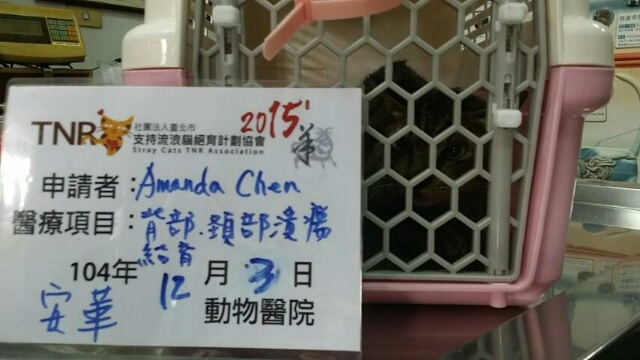 TNR
社團法人臺北市
支持流浪貓絕育計劃協會
Stray Cats TNR Association
2015'
申請者：Amanda Chen
醫療項目：背部、頸部潰瘍
給育
104年 12月 3日
安華 動物醫院